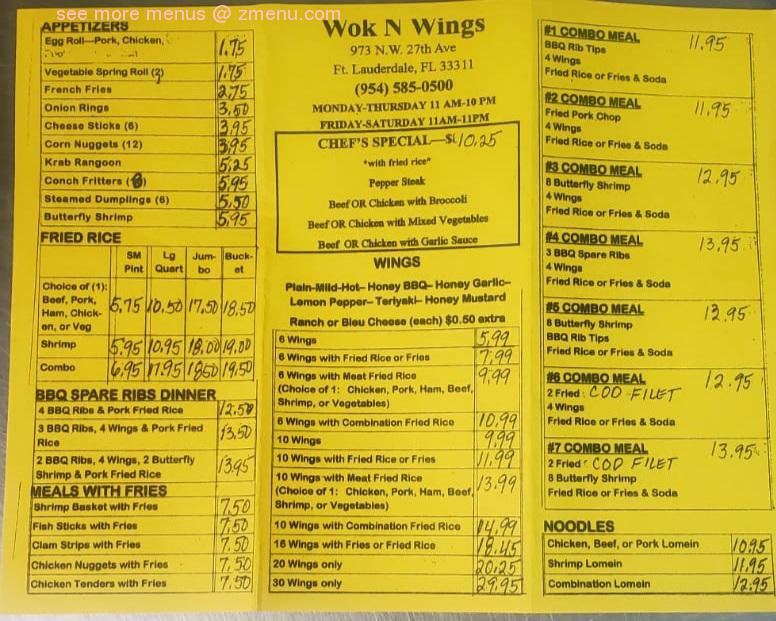 see more menus @ zmenu.com
APPETIZERS
Egg Roll—Pork, Chicken, 1.75
Vegetable Spring Roll (2) 1.75
French Fries 2.75
Onion Rings 3.50
Cheese Sticks (6) 3.95
Corn Nuggets (12) 3.95
Krab Rangoon 5.25
Conch Fritters (8) 5.95
Steamed Dumplings (6) 5.50
Butterfly Shrimp 5.95
FRIED RICE
SM Pint Lg Quart Jum-bo Buck-et
Choice of (1):
Beef, Pork,
Ham, Chick-
en, or Veg 5.75 10.50 17.50 18.50
Shrimp 5.95 10.95 18.00 19.00
Combo 6.95 11.95 18.50 19.50
BBQ SPARE RIBS DINNER
4 BBQ Ribs & Pork Fried Rice 12.50
3 BBQ Ribs, 4 Wings & Pork Fried
Rice 13.50
2 BBQ Ribs, 4 Wings, 2 Butterfly
Shrimp & Pork Fried Rice 13.95
MEALS WITH FRIES
Shrimp Basket with Fries 7.50
Fish Sticks with Fries 7.50
Clam Strips with Fries 7.50
Chicken Nuggets with Fries 7.50
Chicken Tenders with Fries 7.50
Wok N Wings
973 N.W. 27th Ave
Ft. Lauderdale, FL 33311
(954) 585-0500
MONDAY-THURSDAY 11 AM-10 PM
FRIDAY-SATURDAY 11AM-11PM
CHEF'S SPECIAL—$ 10.25
*with fried rice*
Pepper Steak
Beef OR Chicken with Broccoli
Beef OR Chicken with Mixed Vegetables
Beef OR Chicken with Garlic Sauce
WINGS
Plain-Mild-Hot- Honey BBQ- Honey Garlic-
Lemon Pepper- Teriyaki- Honey Mustard
Ranch or Bleu Cheese (each) $0.50 extra
6 Wings 5.99
6 Wings with Fried Rice or Fries 7.99
6 Wings with Meat Fried Rice 9.99
(Choice of 1: Chicken, Pork, Ham, Beef,
Shrimp, or Vegetables)
6 Wings with Combination Fried Rice 10.99
10 Wings 9.99
10 Wings with Fried Rice or Fries 11.99
10 Wings with Meat Fried Rice 13.99
(Choice of 1: Chicken, Pork, Ham, Beef,
Shrimp, or Vegetables)
10 Wings with Combination Fried Rice 14.99
16 Wings with Fries or Fried Rice 18.45
20 Wings only 20.25
30 Wings only 29.95
#1 COMBO MEAL 11.95
BBQ Rib Tips
4 Wings
Fried Rice or Fries & Soda
#2 COMBO MEAL 11.95
Fried Pork Chop
4 Wings
Fried Rice or Fries & Soda
#3 COMBO MEAL 12.95
8 Butterfly Shrimp
4 Wings
Fried Rice or Fries & Soda
#4 COMBO MEAL 13.95
3 BBQ Spare Ribs
4 Wings
Fried Rice or Fries & Soda
#5 COMBO MEAL 13.95
8 Butterfly Shrimp
BBQ Rib Tips
Fried Rice or Fries & Soda
#6 COMBO MEAL 12.95
2 Fried COD FILET
4 Wings
Fried Rice or Fries & Soda
#7 COMBO MEAL 13.95
2 Fried COD FILET
8 Butterfly Shrimp
Fried Rice or Fries & Soda
NOODLES
Chicken, Beef, or Pork Lomein 10.95
Shrimp Lomein 11.95
Combination Lomein 12.95